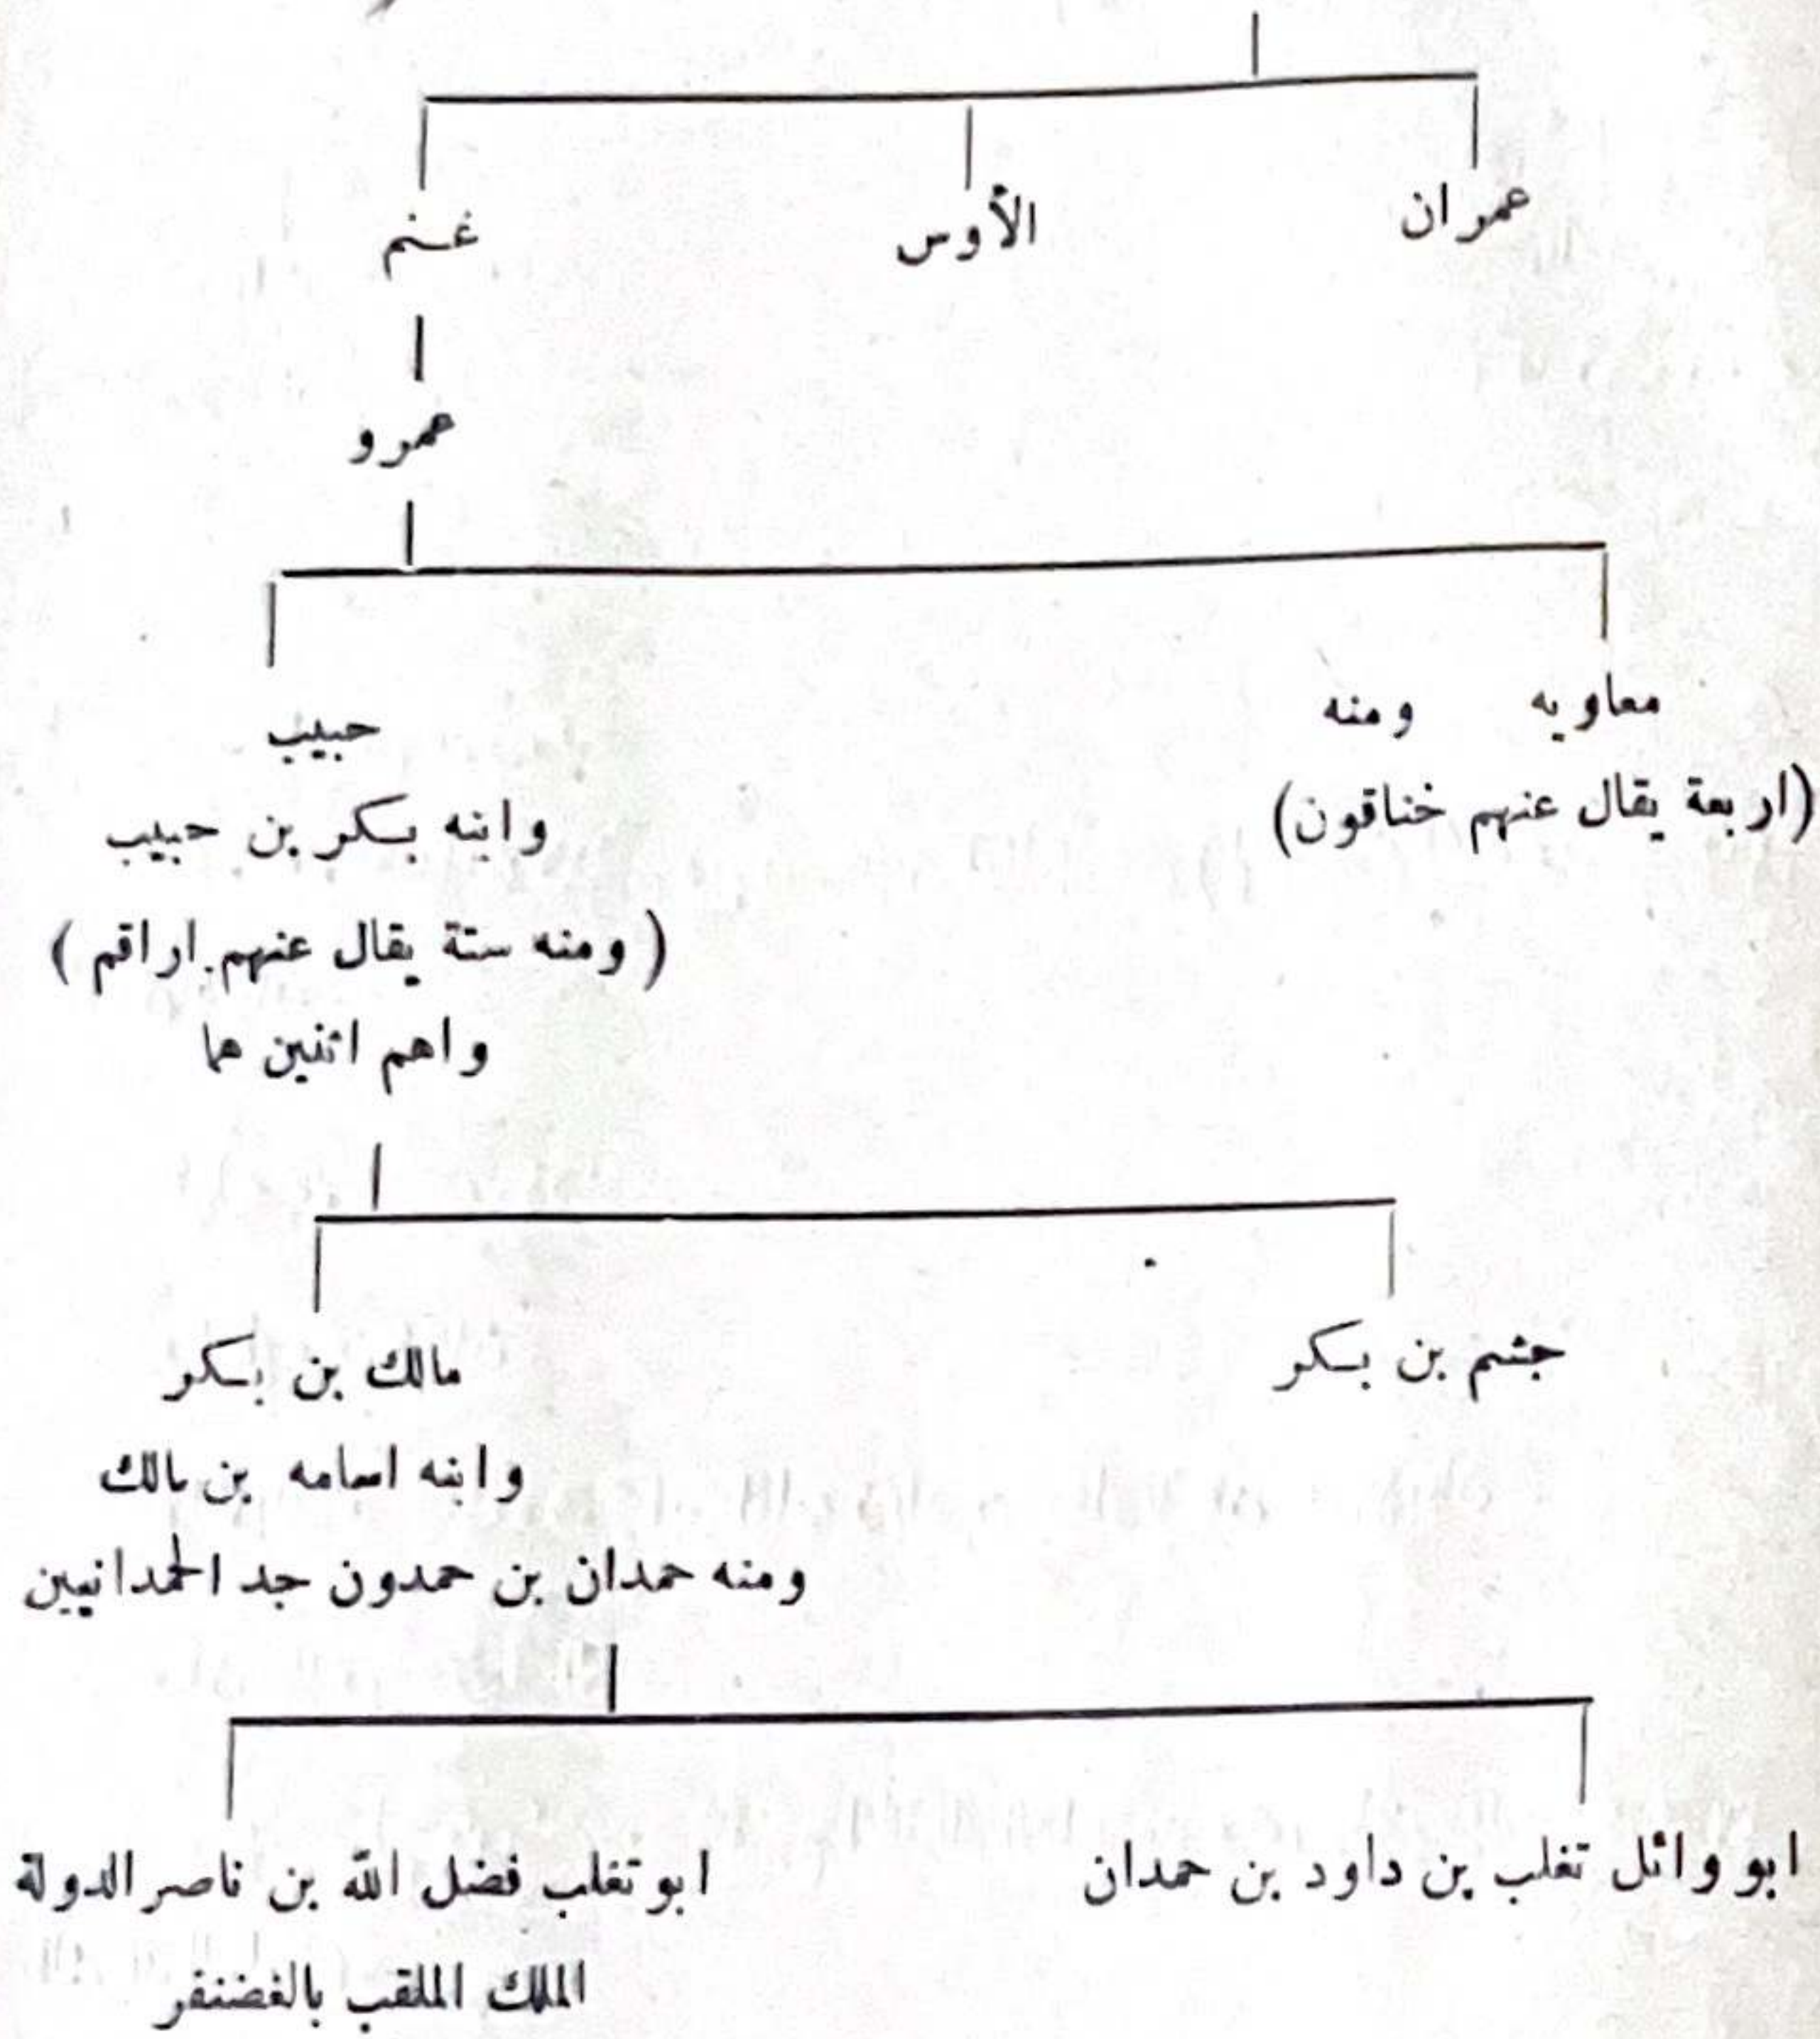 عمران
الأوس
غنم
عمرو
معاويه ومنه
(اربعة يقال عنهم خناقون)
حبيب
وابنه بكر بن حبيب
(ومنه ستة يقال عنهم اراقم)
واهم اثنين هما
جشم بن بكر
مالك بن بكر
وابنه اسامه بن مالك
ومنه حمدان بن حمدون جد الحمدانيين
ابو وائل تغلب بن داود بن حمدان
ابو تغلب فضل الله بن ناصر الدولة
الملك الملقب بالغضنفر